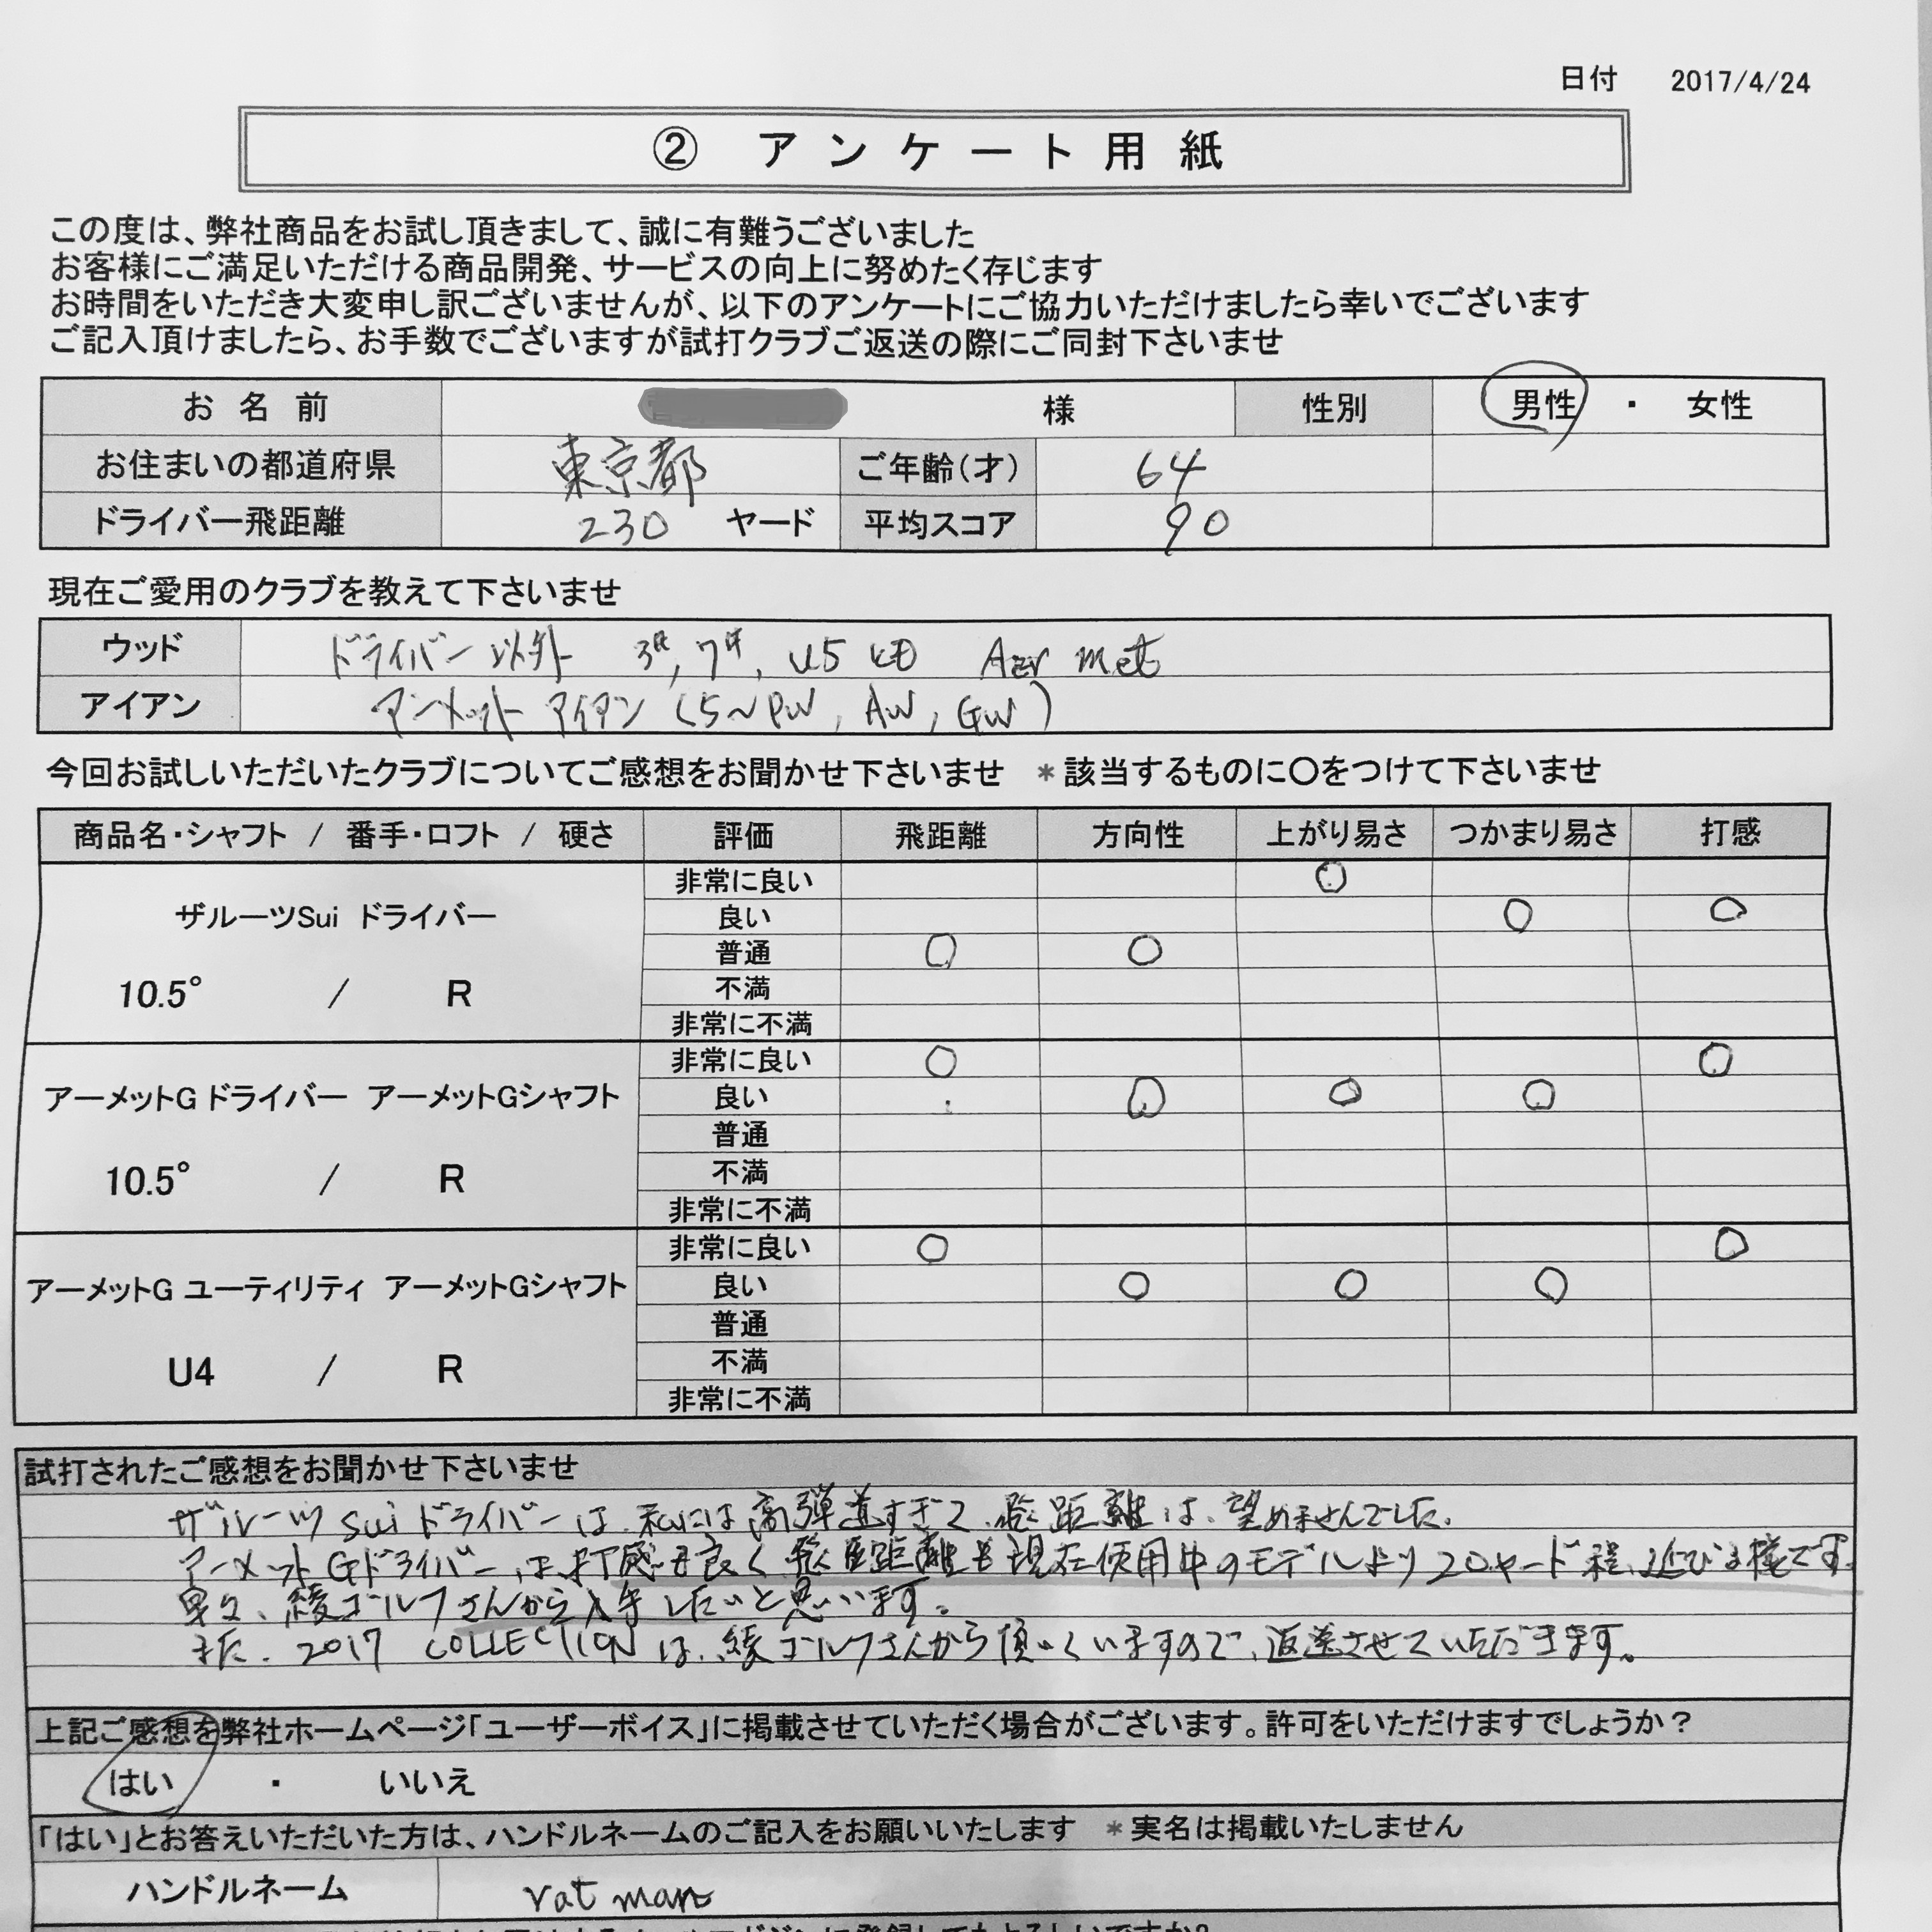 日付 2017/4/24
② アンケート用紙
この度は、弊社商品をお試し頂きまして、誠に有難うございました
お客様にご満足いただける商品開発、サービスの向上に努めたく存じます
お時間をいただき大変申し訳ございませんが、以下のアンケートにご協力いただけましたら幸いでございます
ご記入頂けましたら、お手数でございますが試打クラブご返送の際にご同封下さいませ
お名前 様 性別 男性 ・ 女性
お住まいの都道府県 東京都 ご年齢(才) 64
ドライバー飛距離 230 ヤード 平均スコア 90
現在ご愛用のクラブを教えて下さいませ
ウッド ドライバー以外 3W, 7W, U5 Aer met
アイアン アーメットアイアン (5〜PW, AW, GW)
今回お試しいただいたクラブについてご感想をお聞かせ下さいませ *該当するものに〇をつけて下さいませ
商品名・シャフト / 番手・ロフト / 硬さ 評価 飛距離 方向性 上がり易さ つかまり易さ 打感
非常に良い ○
ザルーツSui ドライバー 良い ○ ○
普通 ○ ○
10.5° / R 不満
非常に不満
非常に良い ○ ○
アーメットG ドライバー アーメットGシャフト 良い ○ ○ ○
普通
10.5° / R 不満
非常に不満
非常に良い ○ ○
アーメットG ユーティリティ アーメットGシャフト 良い ○ ○ ○
普通
U4 / R 不満
非常に不満
試打されたご感想をお聞かせ下さいませ
ザルーツSuiドライバーは、私には高弾道すぎて、飛距離は、望めませんでした。
アーメットGドライバーは打感も良く飛距離も現在使用中のモデルより20ヤード程、延びる様です。
早々、綾ゴルフさんから入手したいと思います。
また、2017 COLLECTIONは、綾ゴルフさんから頂いていますので、返送させていただきます。
上記ご感想を弊社ホームページ「ユーザーボイス」に掲載させていただく場合がございます。許可をいただけますでしょうか？
はい ・ いいえ
「はい」とお答えいただいた方は、ハンドルネームのご記入をお願いいたします *実名は掲載いたしません
ハンドルネーム rat man